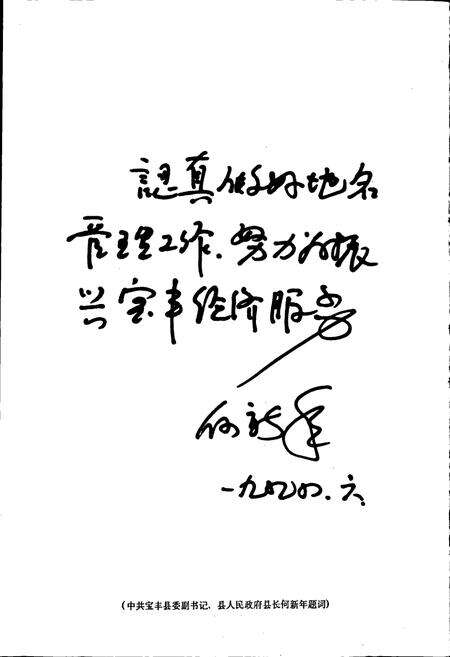 認真做好地名
管理工作、努力为振
兴宝丰经济服务
何新年
一九九〇.六.
(中共宝丰县委副书记、县人民政府县长何新年题词)